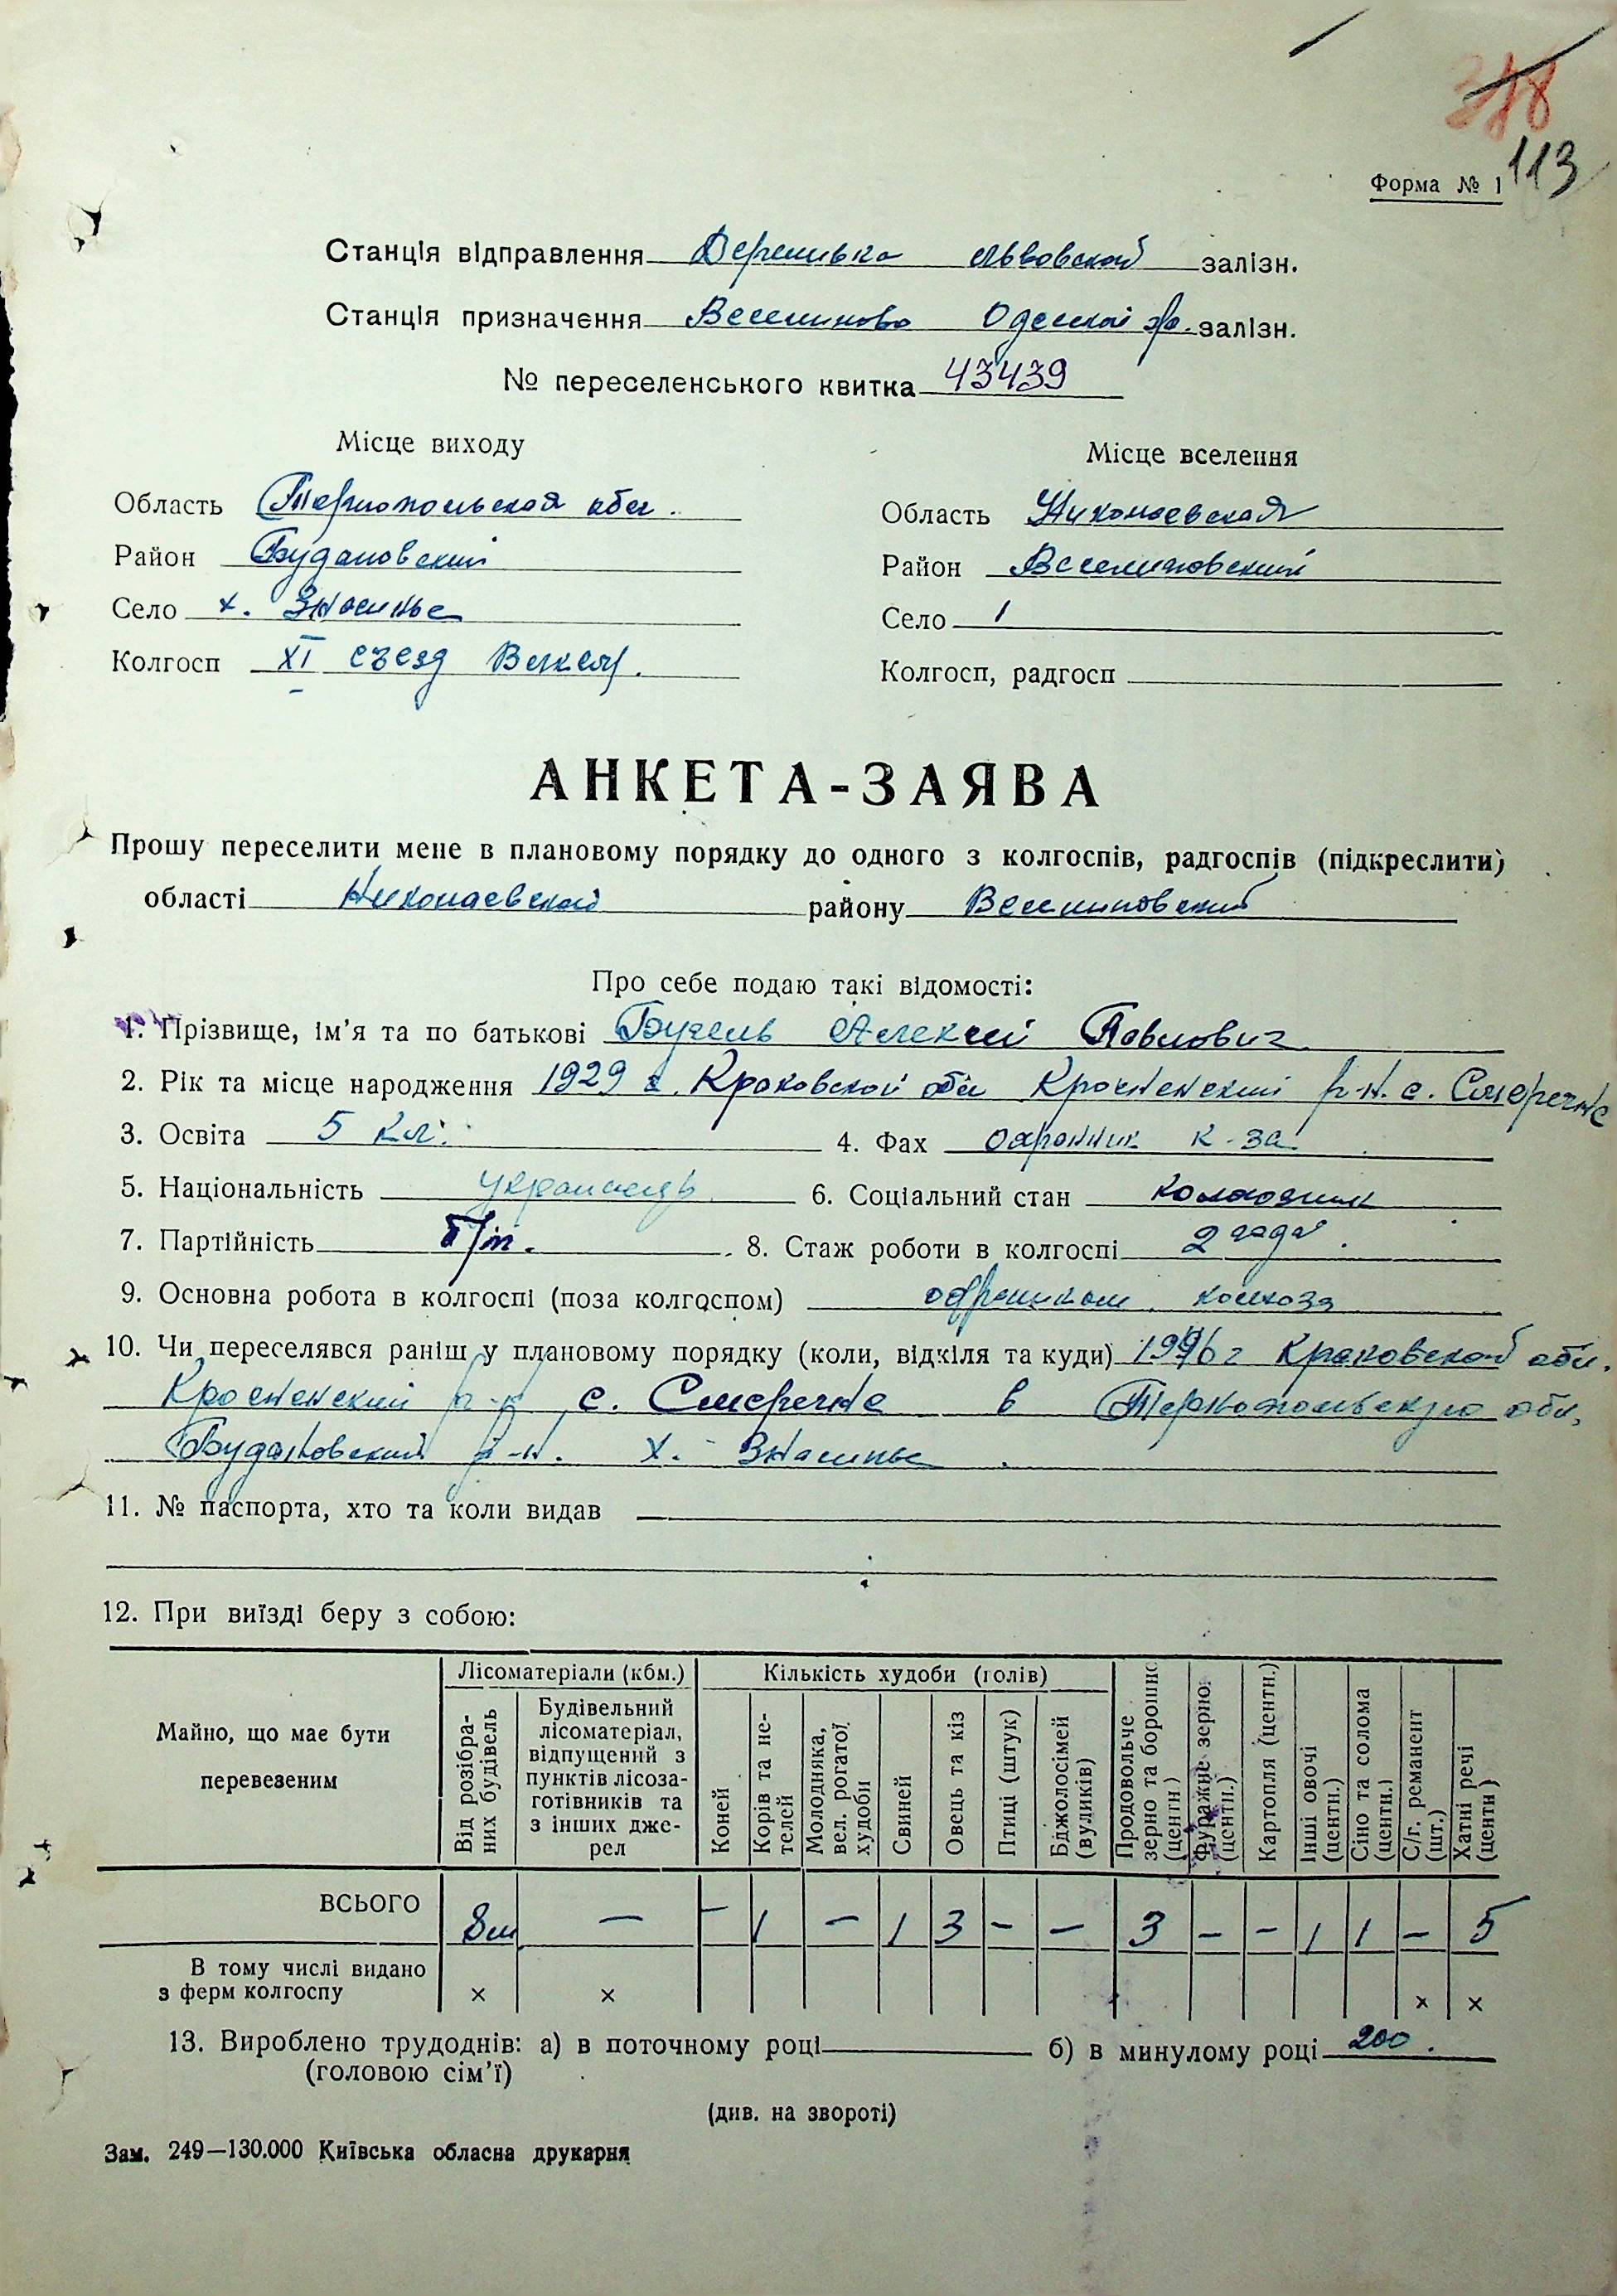 318
113
Форма № 1
Станція відправлення Деренивка Львовской залізн.
Станція призначення Веселиново Одесской ж/д. залізн.
№ переселенського квитка 43439
Місце виходу
Місце вселення
Область Тернопольская обл.
Область Николаевская
Район Будановский
Район Веселиновский
Село х. Зносинье
Село
Колгосп XI съезд ВЛКСМ.
Колгосп, радгосп
АНКЕТА-ЗАЯВА
Прошу переселити мене в плановому порядку до одного з колгоспів, радгоспів (підкреслити)
області Николаевской району Веселиновский
Про себе подаю такі відомості:
1. Прізвище, ім’я та по батькові Алексей Павлович
2. Рік та місце народження 1929 г. Краковской обл Кросненский р-н. с. Смеречне
3. Освіта 5 кл. 4. Фах охранник к-за
5. Національність украинец 6. Соціальний стан колхозник
7. Партійність б/п. 8. Стаж роботи в колгоспі 2 года.
9. Основна робота в колгоспі (поза колгоспом) колхоза
10. Чи переселявся раніш у плановому порядку (коли, відкіля та куди) 1946 г Краковской обл.
Кросненский р-н с. Смеречне в Тернопольскую обл.
Будановский р-н. х. Зносинье.
11. № паспорта, хто та коли видав
12. При виїзді беру з собою:
Майно, що має бути перевезеним
Лісоматеріали (кбм.)
Кількість худоби (голів)
Від розібраних будівель
Будівельний лісоматеріал, відпущений з пунктів лісозаготівників та з інших джерел
Коней
Корів та нетелей
Молодняка, вел. рогатої худоби
Свиней
Овець та кіз
Птиці (штук)
Бджолосімей (вуликів)
Продовольче зерно та борошно (центн.)
Фуражне зерно (центн.)
Картопля (центн.)
Інші овочі (центн.)
Сіно та солома (центн.)
С/г. реманент (шт.)
Хатні речі (центн)
ВСЬОГО 8м — — 1 — 1 3 — — 3 — — 1 1 — 5
В тому числі видано
з ферм колгоспу × × × ×
13. Вироблено трудоднів: а) в поточному році б) в минулому році 200.
(головою сім’ї)
(див. на звороті)
Зам. 249—130.000 Київська обласна друкарня